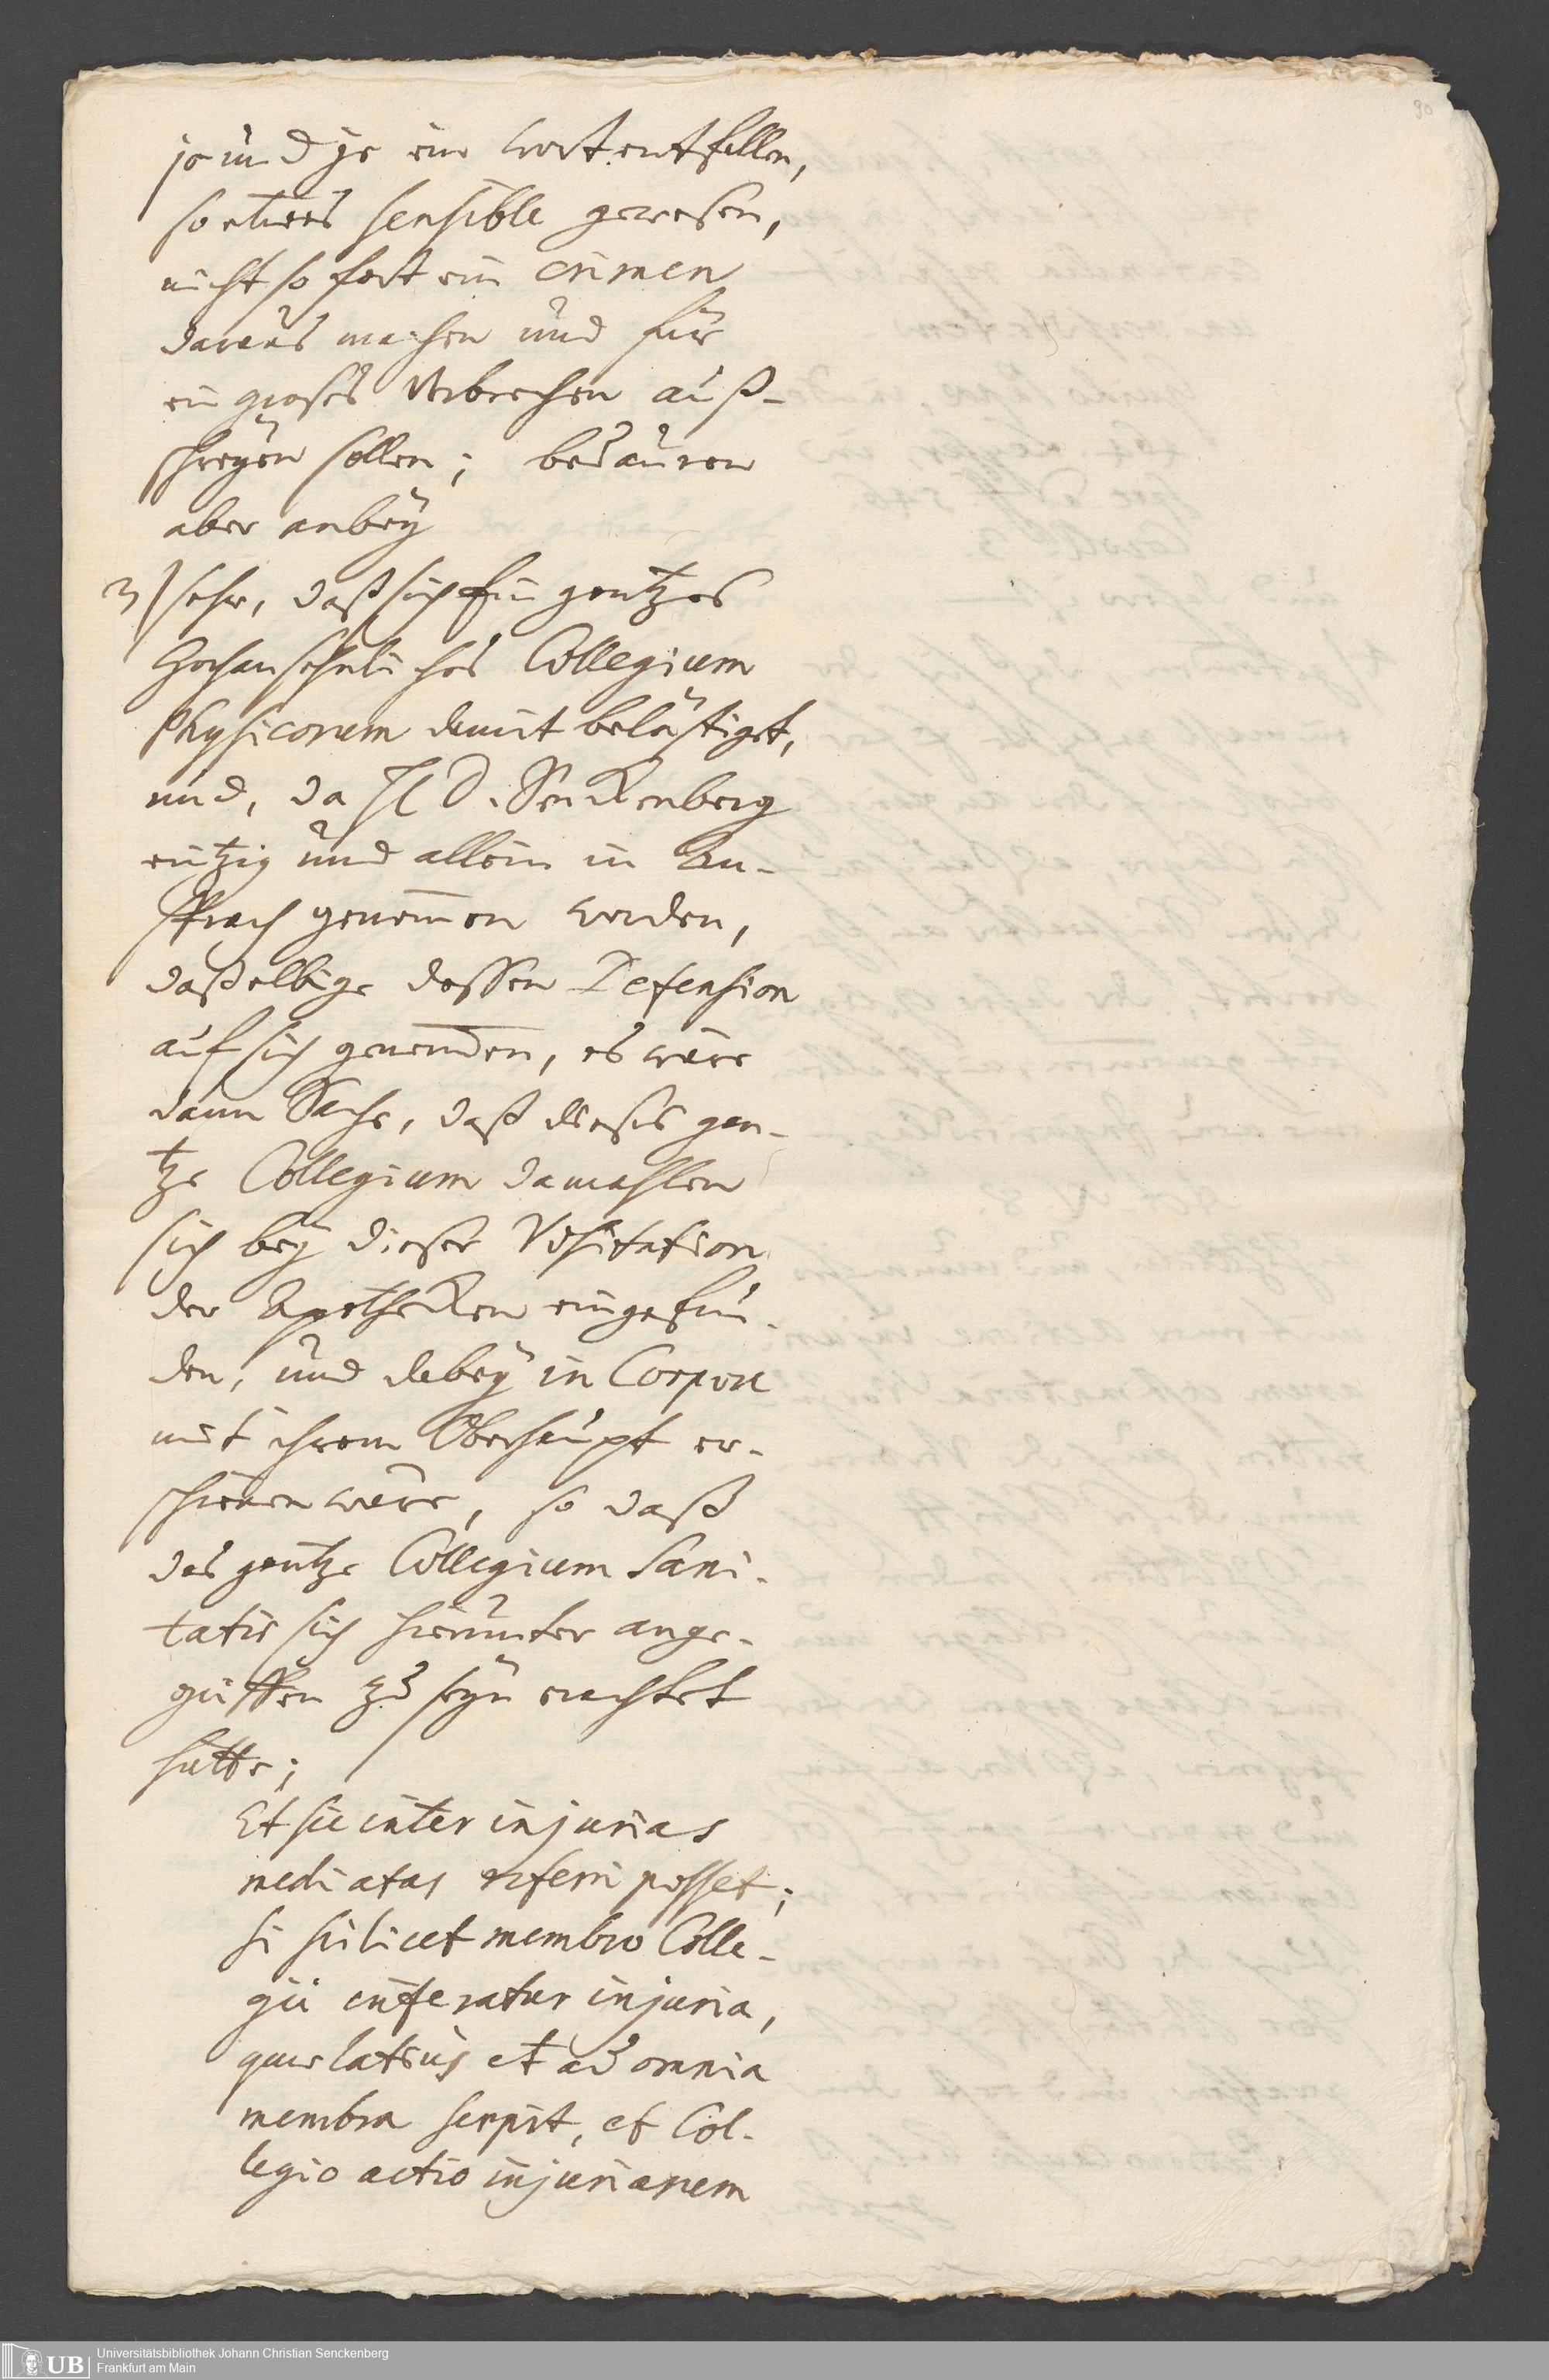 90
je und je ein wort entfallen,
so etwas sensible gewesen,
nicht so fort ein crimen
daraus machen und für
ein großes Verbrechen auß-
schreyen sollen; bedauren
aber anbey
3) sehr, daß sich Ein gantzes
Hochansehnliches Collegium
Physicorum damit belästiget,
und, da H D. Senckenberg
eintzig und allein in An-
spruch genommen worden,
daßelbige deßen Defension
auf sich genommen, es wäre
dann Sache, daß dießes gan-
tze Collegium damahlen
sich bey dießer Visitation
der Apothecken eingefun-
den, und dabey in Corpore
mit ihrem Oberhaupt er-
schienen wäre, so daß
das gantze Collegium Sani-
tatis sich hierunter ange-
griffen zu seyn erachtet
hätte;
Et sic inter injurias
mediatas referri posset;
si scilicet membro Colle-
gii inferatur injuria,
quae latius et ad omnia
membra serpit, et Col-
legio actio injuriarum
UB
Universitätsbibliothek Johann Christian Senckenberg
Frankfurt am Main